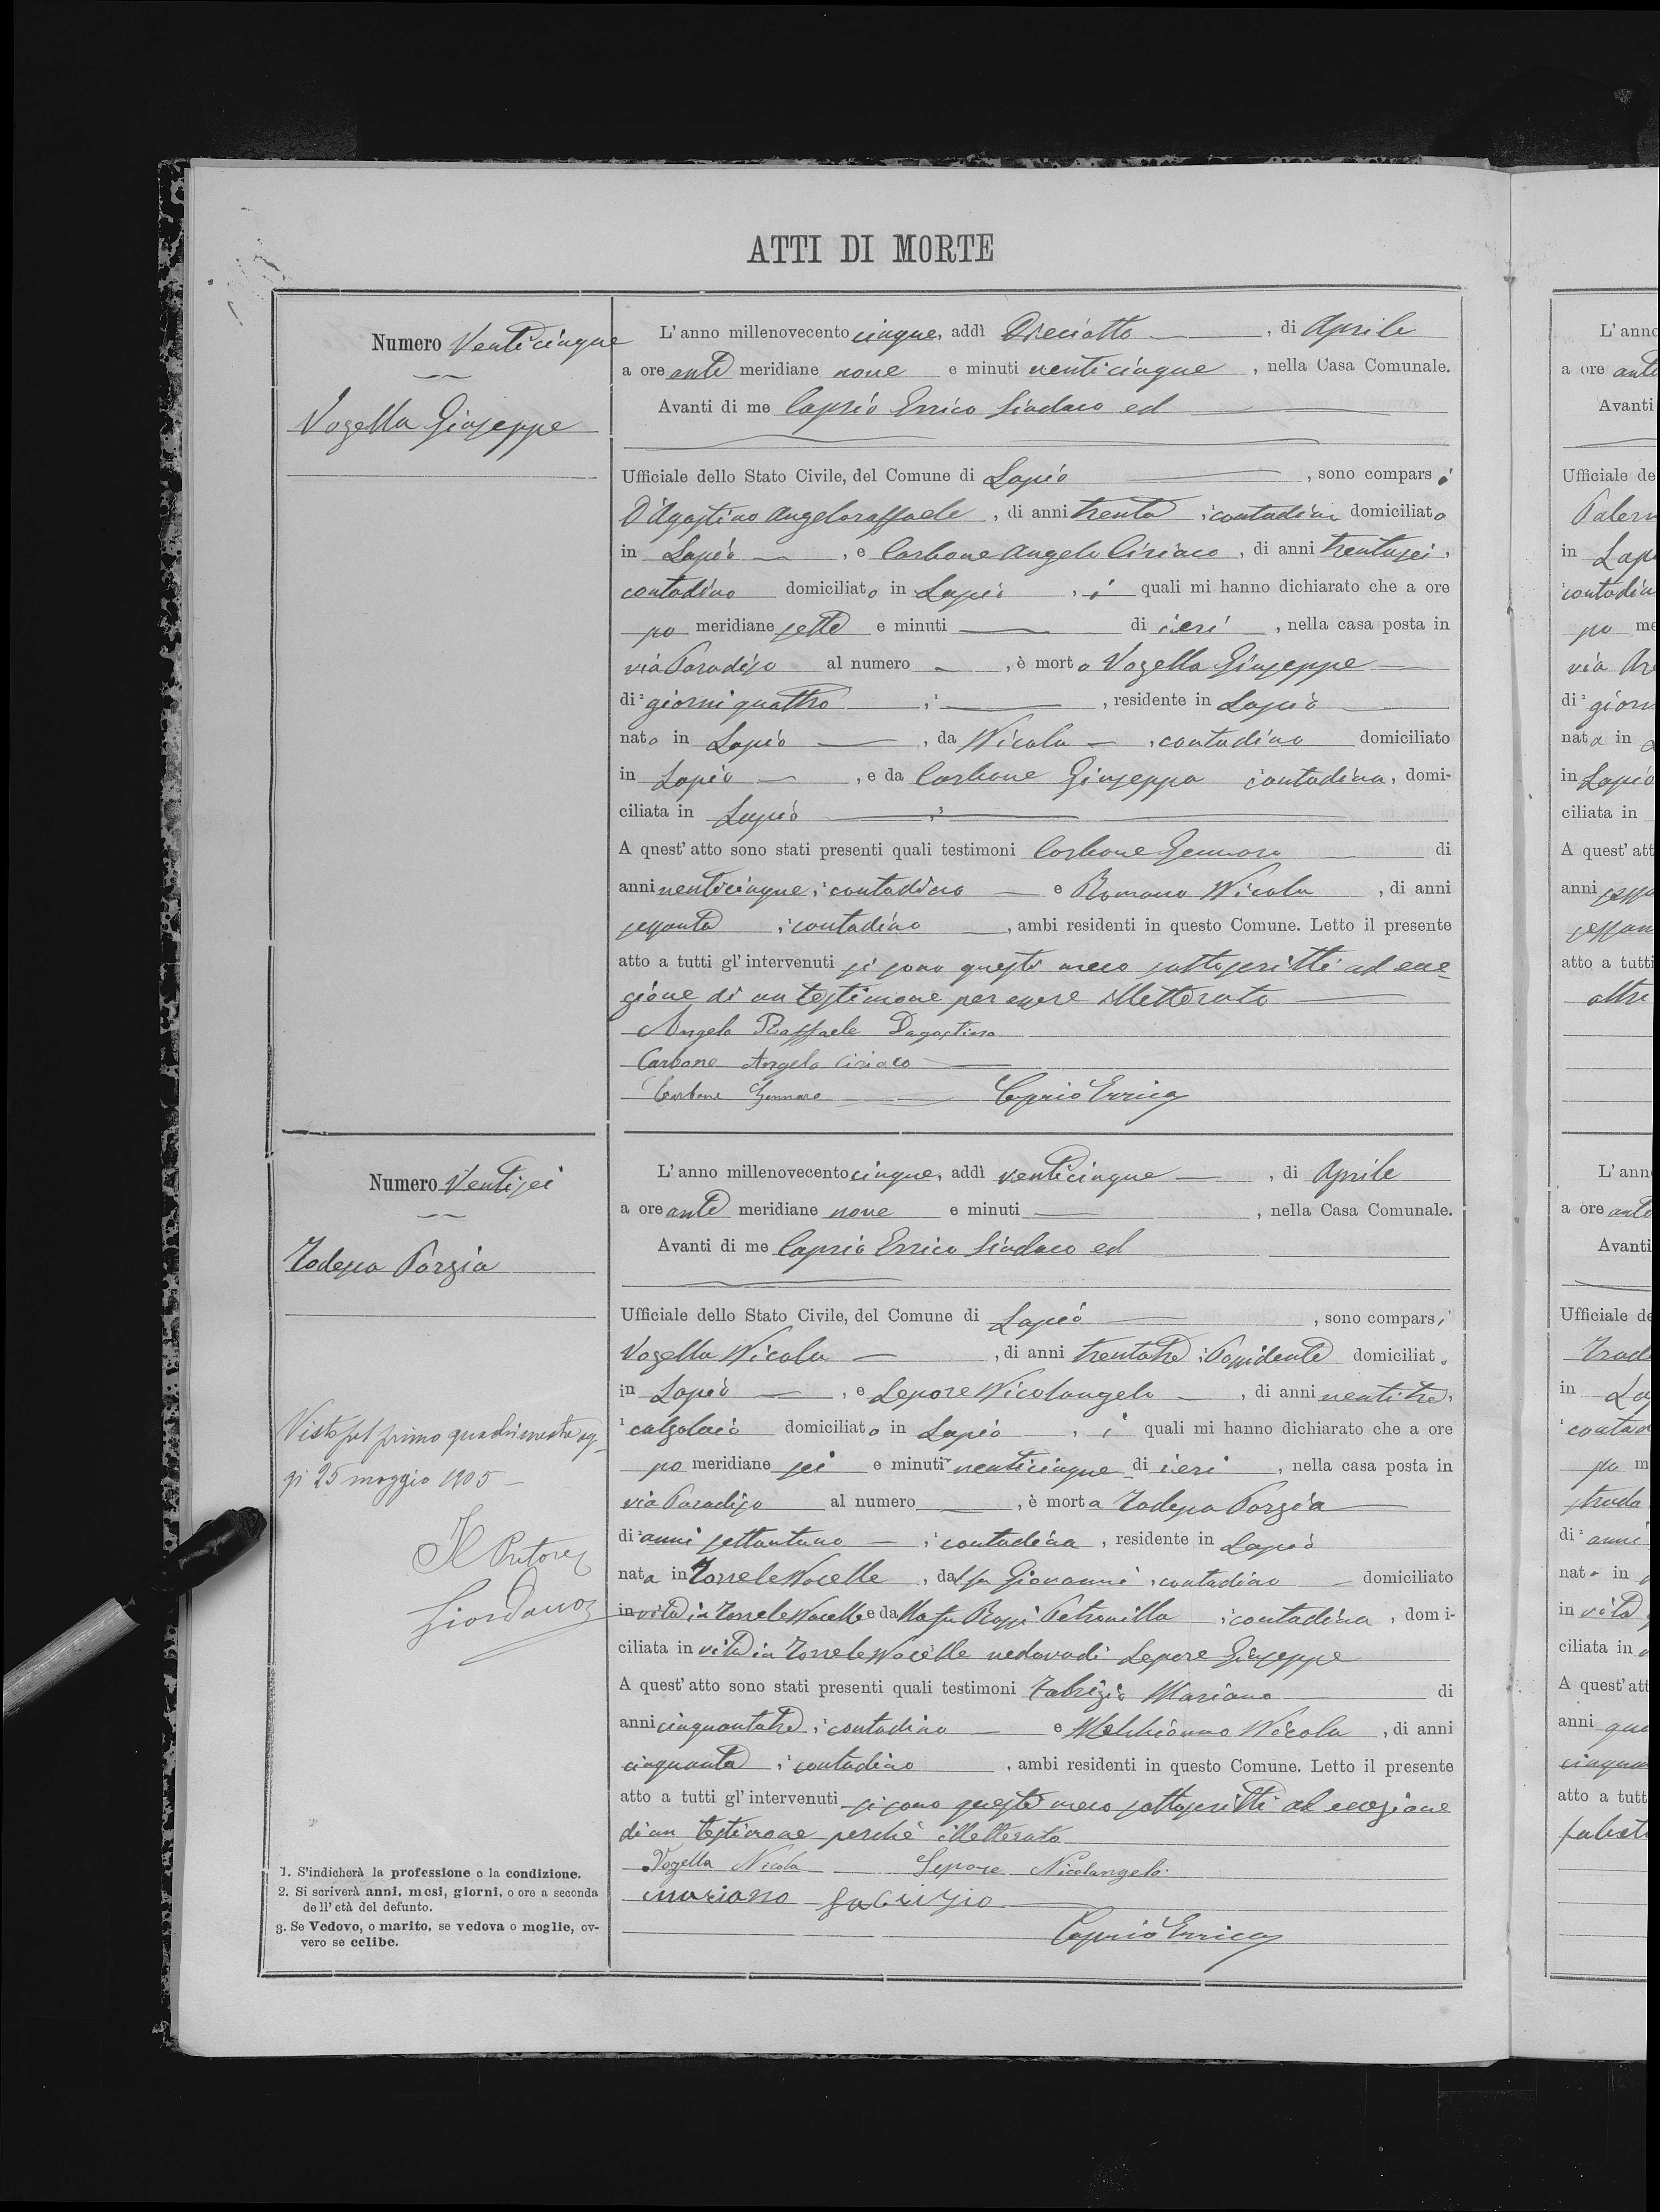 ATTI DI MORTE
Numero Venticinque
Vozella Giuseppe
L'anno millenovecento cinque, addì Dieciotto, di Aprile
a ore ante meridiane nove e minuti venticinque, nella Casa Comunale.
Avanti di me Caprio Errico Sindaco ed
Ufficiale dello Stato Civile, del Comune di Lapio, sono comparsi
D'Agostino Angeloraffaele, di anni trenta, contadino domiciliato
in Lapio, e Carbone Angelo Ciriaco, di anni trentasei,
contadino domiciliato in Lapio, i quali mi hanno dichiarato che a ore
po meridiane sette e minuti di ieri, nella casa posta in
via Paradiso al numero, è morto Vozella Giuseppe
di 2 giorni quattro, 1, residente in Lapio
nato in Lapio, da Nicola, contadino domiciliato
in Lapio, e da Carbone Giuseppa contadina, domi-
ciliata in Lapio 3
A quest'atto sono stati presenti quali testimoni Carbone Gennaro di
anni venticinque, contadino e Romano Nicola, di anni
sessanta, contadino, ambi residenti in questo Comune. Letto il presente
atto a tutti gl'intervenuti si sono questi meco sottoscritti ad ecce-
zione di un testimone per essere illetterato
Angelo Raffaele Dagostino
Carbone Angelo Ciriaco
Carbone Gennaro Caprio Errico
Numero Ventisei
Todesca Porzia
Visto pel primo quadrimestre og-
gi 25 maggio 1905
Il Pretore
Giordano
L'anno millenovecento cinque, addì venticinque, di Aprile
a ore ante meridiane nove e minuti, nella Casa Comunale.
Avanti di me Caprio Errico Sindaco ed
Ufficiale dello Stato Civile, del Comune di Lapio, sono comparsi
Vozella Nicola, di anni trentatre, Possidente domiciliato
in Lapio, e Lepore Nicolangelo, di anni ventitre,
1 calzolaio domiciliato in Lapio, i quali mi hanno dichiarato che a ore
po meridiane sei e minuti venticinque di ieri, nella casa posta in
via Paradiso al numero, è morta Todesca Porzia
di 2 anni settantuno, contadina, residente in Lapio
nata in Torre le Nocelle, dal fu Giovanni, contadino domiciliato
in vita in Torre le Nocelle e dalla fu Rossi Petronilla, contadina, domi-
ciliata in vita in Torre le Nocelle vedova di Lepore Giuseppe
A quest'atto sono stati presenti quali testimoni Fabrizio Mariano di
anni cinquantatre, contadino e Melchionno Nicola, di anni
cinquanta, contadino, ambi residenti in questo Comune. Letto il presente
atto a tutti gl'intervenuti si sono questi meco sottoscritti ad eccezione
di un testimone perché illetterato
Vozella Nicola Lepore Nicolangelo
Mariano Fabrizio
Caprio Errico
1. S'indicherà la professione o la condizione.
2. Si scriverà anni, mesi, giorni, o ore a seconda
dell'età del defunto.
3. Se Vedovo, o marito, se vedova o moglie, ov-
vero se celibe.